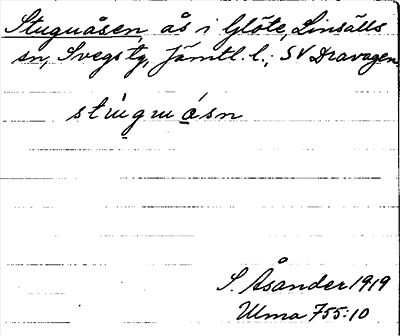 Stuguåsen, ås i Glöte, Linsälls
sn, Svegs tg, Jämtl. l.; SV Dravagen
stug​uåsn
S. Åsander 1919
Ulma 755:10